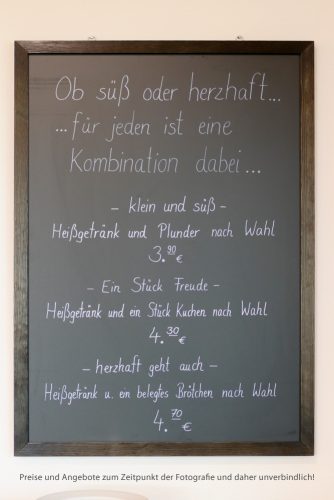 Ob süß oder herzhaft...
...für jeden ist eine
Kombination dabei...
– klein und süß –
Heißgetränk und Plunder nach Wahl
3.90 €
– Ein Stück Freude –
Heißgetränk und ein Stück Kuchen nach Wahl
4.30 €
– herzhaft geht auch –
Heißgetränk u. ein belegtes Brötchen nach Wahl
4.70 €
Preise und Angebote zum Zeitpunkt der Fotografie und daher unverbindlich!